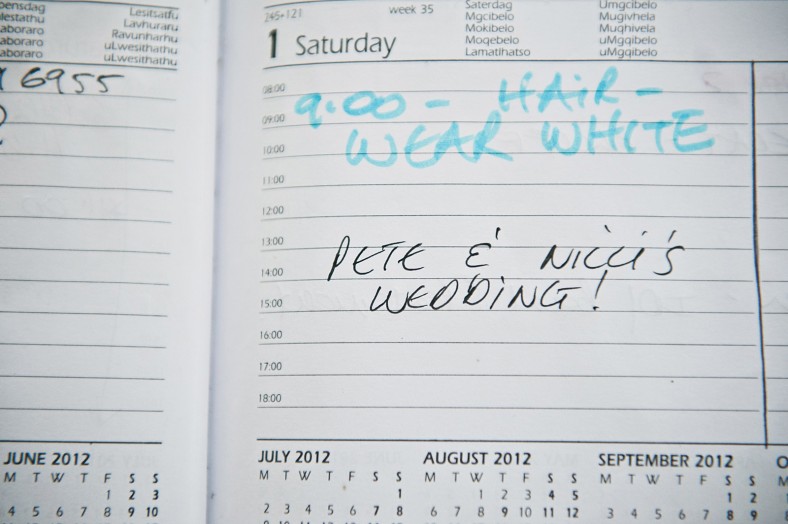 Lesitsatfu
Lavhuraru
Ravunharhu
uLwesithathu
uLwesithathu
6955
JUNE 2012
M T W T F S S
1 2 3
4 5 6 7 8 9 10
245-121
week 35
Saterdag
Mgcibelo
Mokibelo
Moqebelo
Lamatlhatso
Umgcibelo
Mugivhela
Mughivela
uMgqibelo
uMgqibelo
1 Saturday
08:00
9:00 - HAiR -
09:00
WEAR WHITE
10:00
11:00
12:00
13:00
PETE & Nicci's
14:00
WEDDiNG!
15:00
16:00
17:00
18:00
JULY 2012
M T W T F S S
1
2 3 4 5 6 7 8
AUGUST 2012
M T W T F S S
1 2 3 4 5
6 7 8 9 10 11 12
SEPTEMBER 2012
M T W T F S S
1 2
3 4 5 6 7 8 9